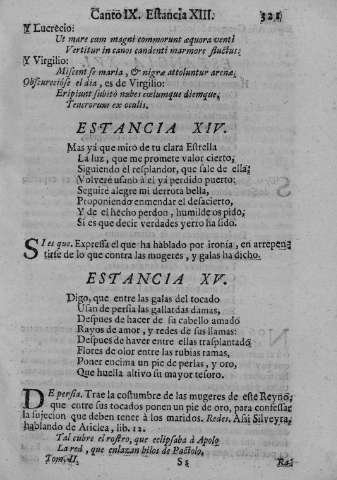 Canto IX. Estancia XIII. 321
Y Lucrecio:
Ut mare cum magni commorunt æquora venti
Vertitur in canos candenti marmore fluctus:
Y Virgilio:
Miscent se maria, & nigræ attoluntur arenæ.
Obscureciòse el dia, es de Virgilio:
Eripiunt subitò nubes cœlumque diemque,
Teucrorum ex oculis.
ESTANCIA XIV.
Mas yà que miro de tu clara Estrella
La luz, que me promete valor cierto,
Siguiendo el resplandor, que sale de ella;
Volverè usano à el yà perdido puerto:
Seguirè alegre mi derrota bella,
Proponiendo enmendar el desacierto,
Y de el hecho perdon, humilde os pido;
Si es que decir verdades yerro ha sido.
SI es que. Expressa el que ha hablado por ironia, en arrepen-
tirse de lo que contra las mugeres, y galas ha dicho.
ESTANCIA XV.
Digo, que entre las galas del tocado
Usan de persia las gallardas damas,
Despues de hacer de su cabello amado
Rayos de amor, y redes de sus llamas:
Despues de haver entre ellas trasplantado
Flores de olor entre las rubias ramas,
Poner encima un pie de perlas, y oro,
Que huella altivo su mayor tesoro.
DE persia. Trae la costumbre de las mugeres de este Reyno,
que entre sus tocados ponen un pie de oro, para confessar
la sujecion que deben tener à los maridos. Redes. Assi Silveyra,
hablando de Ariclea, lib. 12.
Tal cubre el rostro, que eclipsaba à Apolo
La red, que enlazan hilos de Pactolo.
Tom. II. Ss Ra-